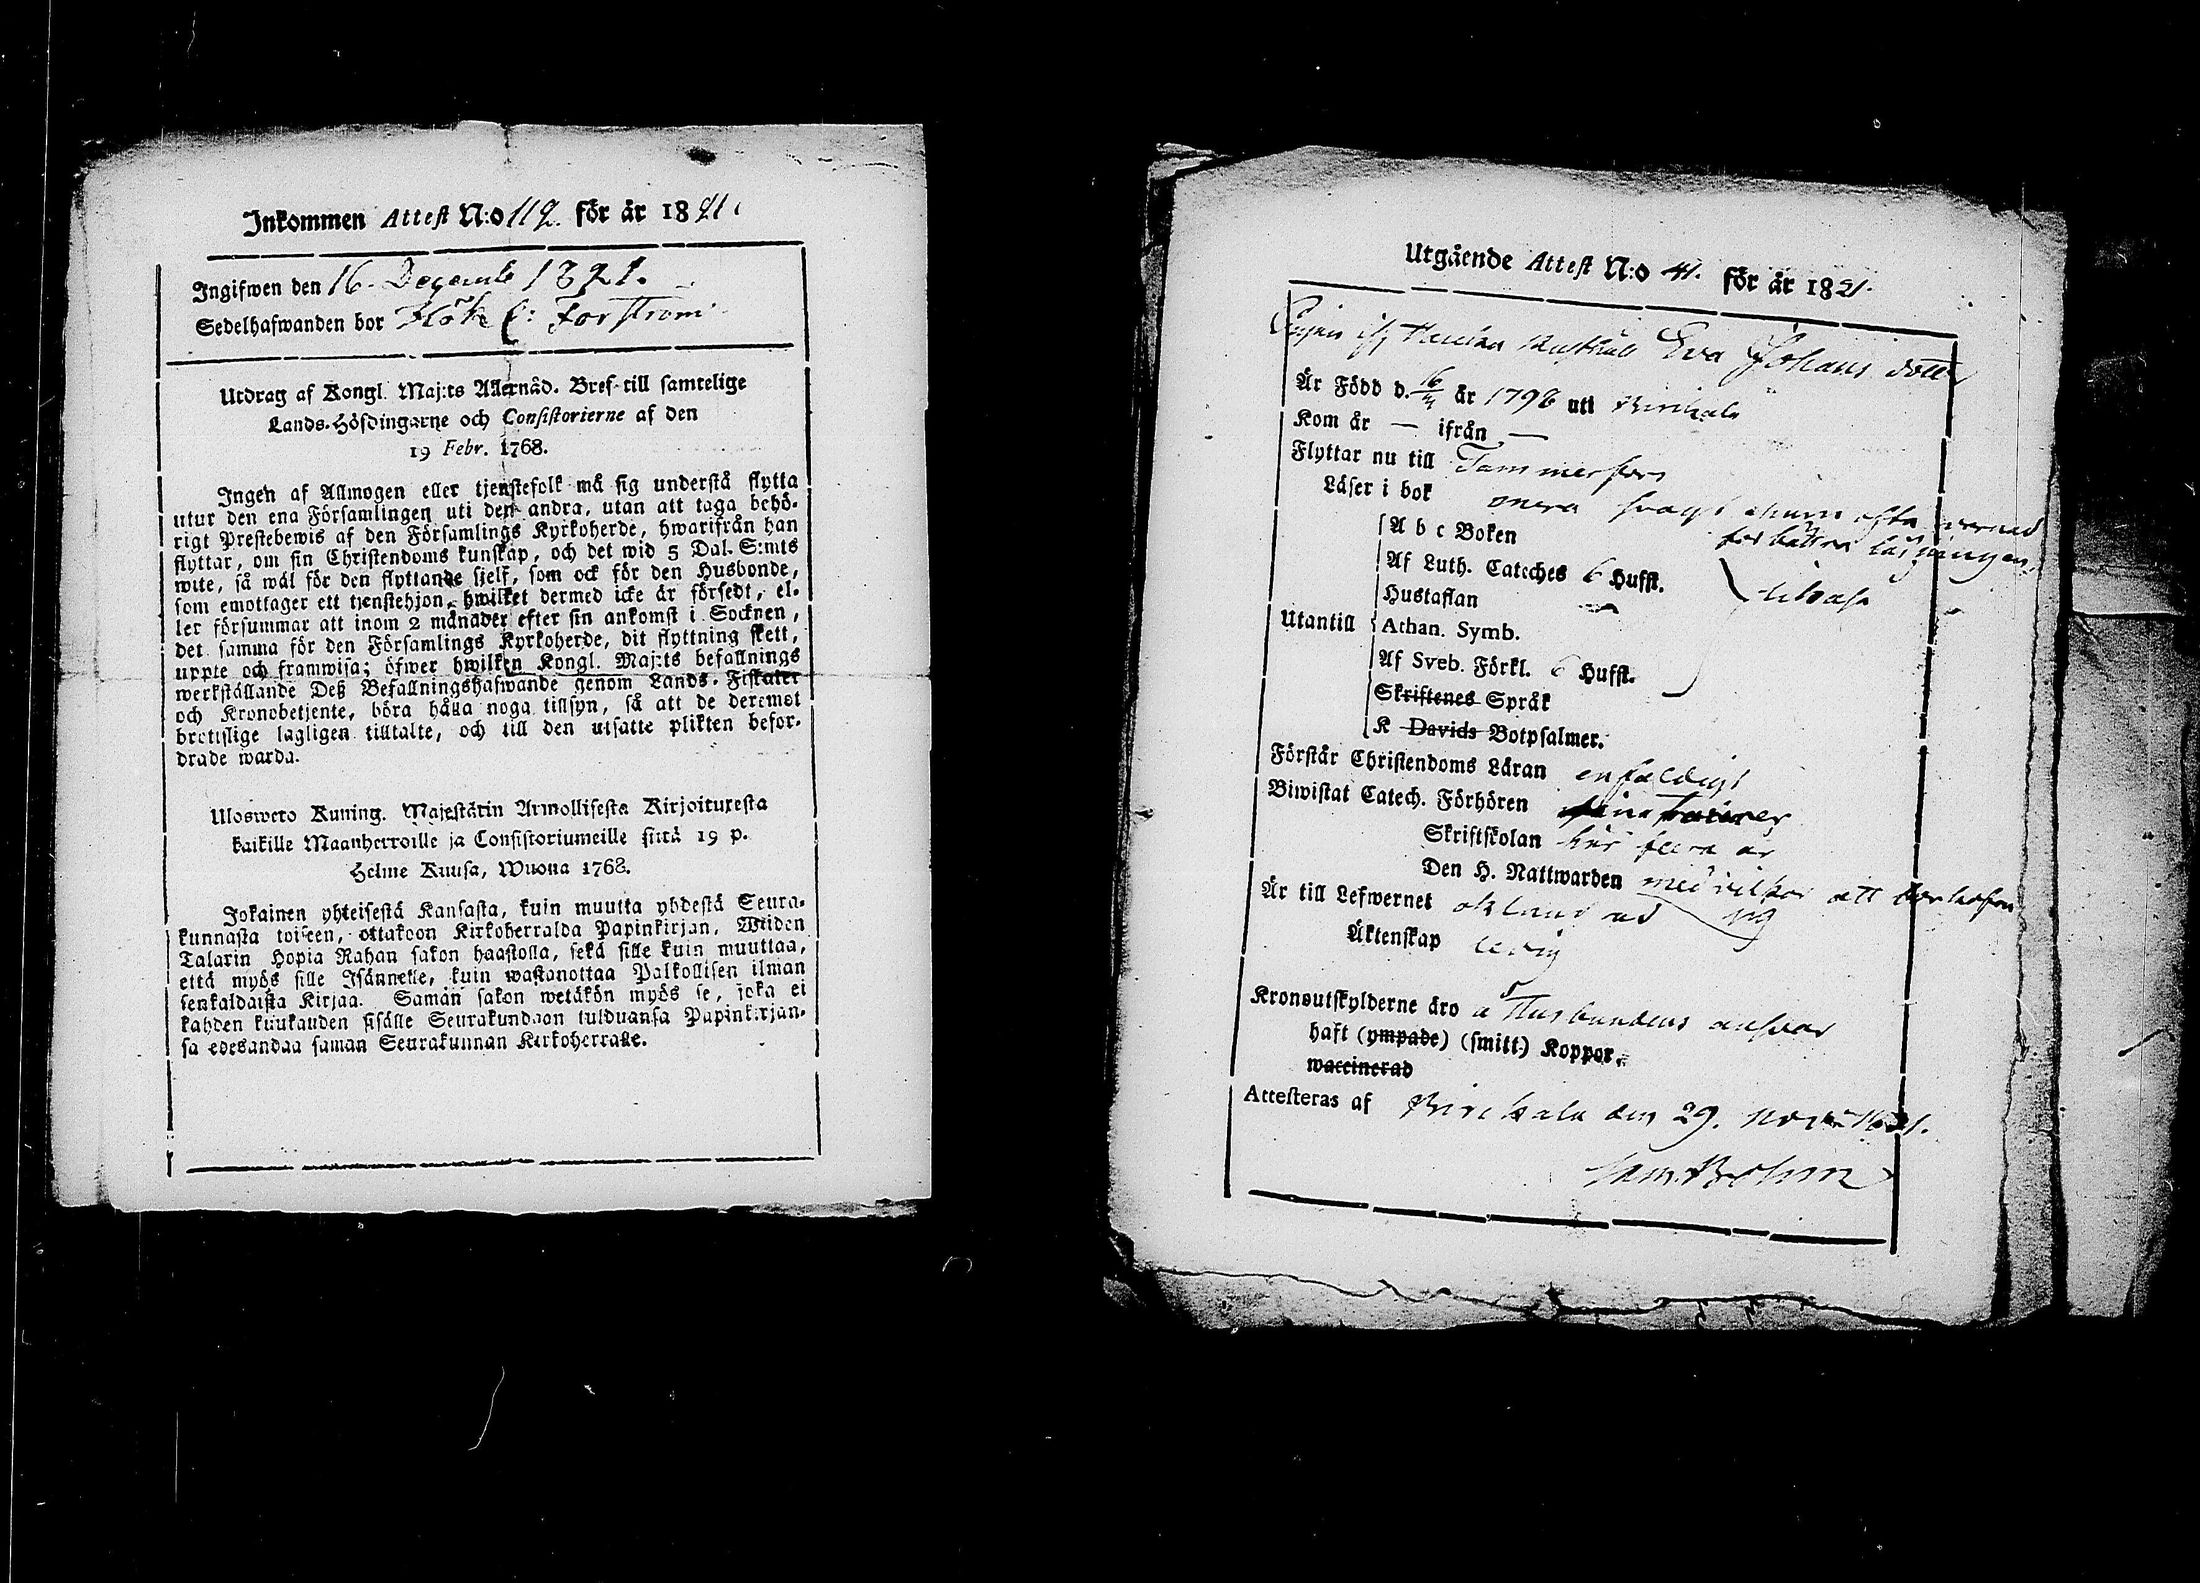 Inkommen Attest N:o 112 för år 1821.
Ingifwen den 16. Decemb 1821.
Sedelhafwanden bor Hök Forström
Utdrag af Kongl. Maj:ts Allernåd. Bref till samtelige
Lands-Höfdingarne och Consistorierne af den
19 Febr. 1768.
Ingen af Allmogen eller tjenstefolk må sig understå flytta
utur den ena Församlingen uti den andra, utan att taga behö-
rigt Prestebewis af den Församlings Kyrkoherde, hwarifrån han
flyttar, om sin Christendoms kunskap, och det wid 5 Dal. S:mts
wite, så wäl för den flyttande sjelf, som ock för den Husbonde,
som emottager ett tjenstehjon, hwilket dermed icke är försedt, el-
ler försummar att inom 2 månader efter sin ankomst i Socknen,
det samma för den Församlings Kyrkoherde, dit flyttning skett,
uppte och framwisa; öfwer hwilken Kongl. Maj:ts befallnings
werkställande Deß Befallningshafwande genom Lands-Fiskaler
och Kronobetjente, böra hålla noga tillsyn, så att de deremot
brottslige lagligen tilltalte, och till den utsatte plikten befor-
drade warda.
Ulosweto Kuning. Majestätin Armollisesta Kirjoituxesta
kaikille Maanherroille ja Consistoriumeille siitä 19 p.
Helme Kuusa, Wuona 1768.
Jokainen yhteisestä Kansasta, kuin muutta yhdestä Seura-
kunnasta toiseen, ottakoon Kirkoherralda Papinkirjan, Wiiden
Talarin Hopia Rahan sakon haastolla, sekä sille kuin muuttaa,
että myös sille Isännelle, kuin wastanottaa Palkollisen ilman
senkaldaista Kirjaa. Samän sakon wetäkön myös se, joka ei
kahden kuukauden sisälle Seurakundaan tulduansa Papinkirjan-
sa edesandaa saman Seurakunnan Kirkoherralle.
Utgående Attest N:o 41. för år 1821.
Pigan ifr Eva Johans dotter
Är Född d. 16 år 1798 uti Birckala
Kom år — ifrån —
Flyttar nu till Tammerfors
Läser i bok svagt
A b c Boken förbättra läsningen
Af Luth. Cateches 6 Hufst.
Hustaflan
Utantill Athan. Symb.
Af Sveb. Förkl. 6 Hufst.
Skriftenes Språk
K Davids Botpsalmer.
Förstår Christendoms Läran enfaldigt
Biwistat Catech. Förhören
Skriftskolan här flera år
Den H. Nattwarden med vilkor att
Är till Lefwernet oklandrad sig
Äktenskap ledig
Kronoutskylderne äro å Husbondens ansvar
haft (ympade) (smitt.) Koppor.
waccinerad
Attesteras af Birckala den 29. Nov 1821.